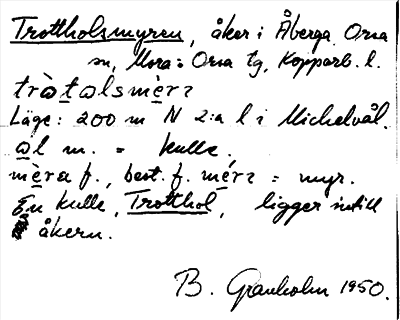 Trottholsmyren, åker i Åberga Orsa
sn, Mora o Orsa tg, Kopparb. l.
Läge: 200 m N 2:a l i Michelvål.
al m. = kulle.
mèra f., best. f. mérɿ = myr.
En kulle, Trotthol, ligger intill
åkern.
B. Granholm 1950.